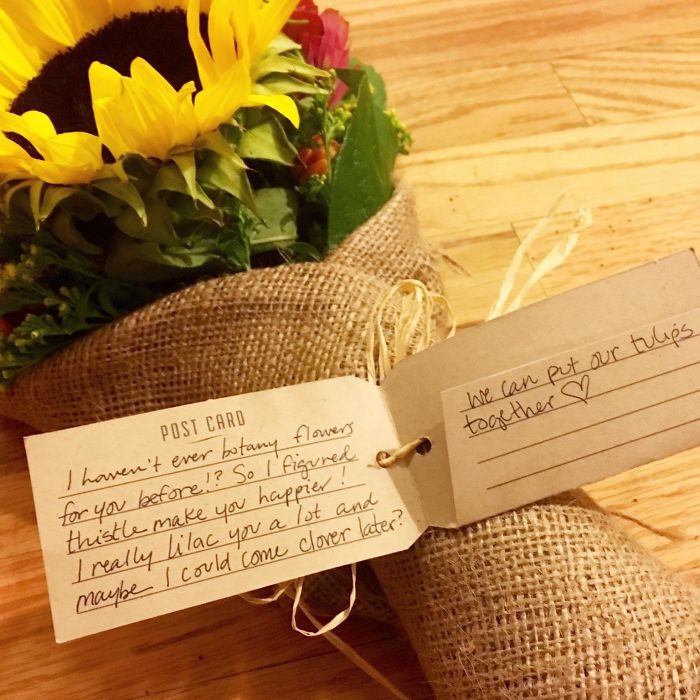 POST CARD
I haven't ever botany flowers
for you before!? So I figured
thistle make you happier!
I really lilac you a lot and
maybe I could come clover later?
We can put our tulips
together ♡